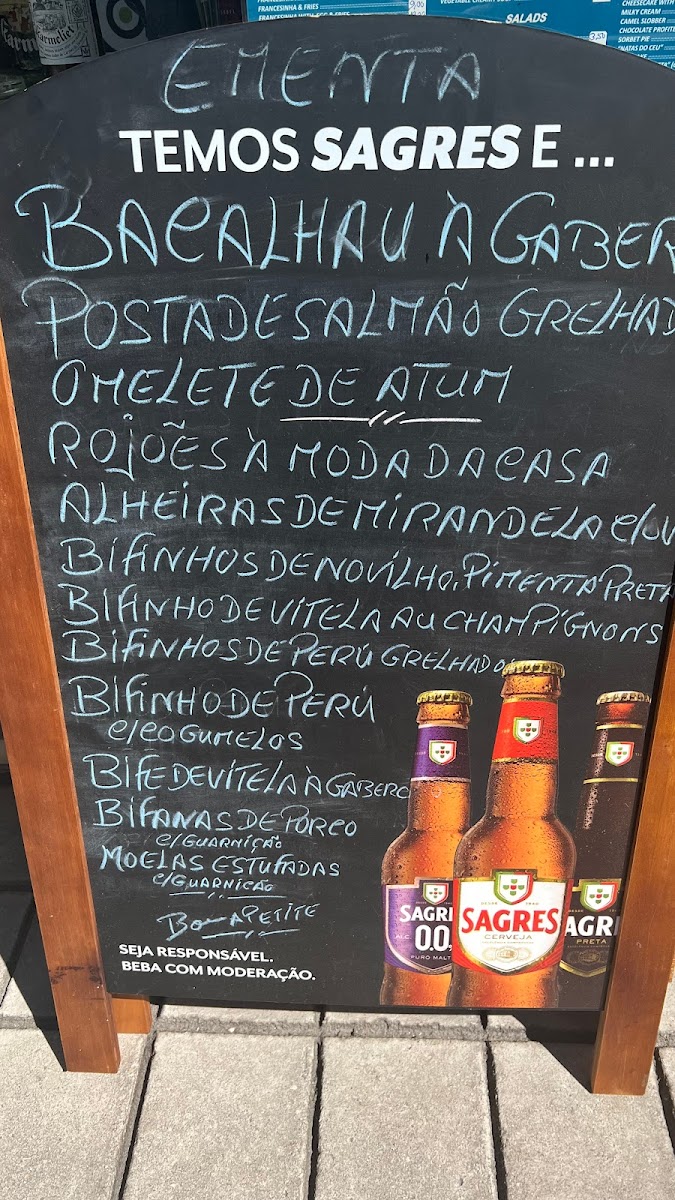 FRANCESINHA & FRIES
SALADS
3,50
CHEESECAKE WITH
MILKY CREAM
CAMEL SLOBBER
CHOCOLATE PROFITE
SORBET PIE
"NATAS DO CEU"
EMENTA
TEMOS SAGRES E ...
BACALHAU À GABER
POSTA DE SALMÃO GRELHAD
OMELETE DE ATUM
ROJÕES À MODA DA CASA
ALHEIRAS DE MIRANDELA C/OV
BIFINHOS DE NOVILHO, PIMENTA PRETA
BIFINHO DE VITELA AU CHAMPIGNONS
BIFINHOS DE PERÚ GRELHADO
BIFINHO DE PERÚ
C/COGUMELOS
BIFE DE VITELA À GABERO
BIFANAS DE PORCO
C/GUARNIÇÃO
MOELAS ESTUFADAS
C/GUARNIÇÃO
Bom APETITE
SEJA RESPONSÁVEL.
BEBA COM MODERAÇÃO.
SAGRE
0.0
PURO MALT
SAGRES
CERVEJA
AGR
PRETA